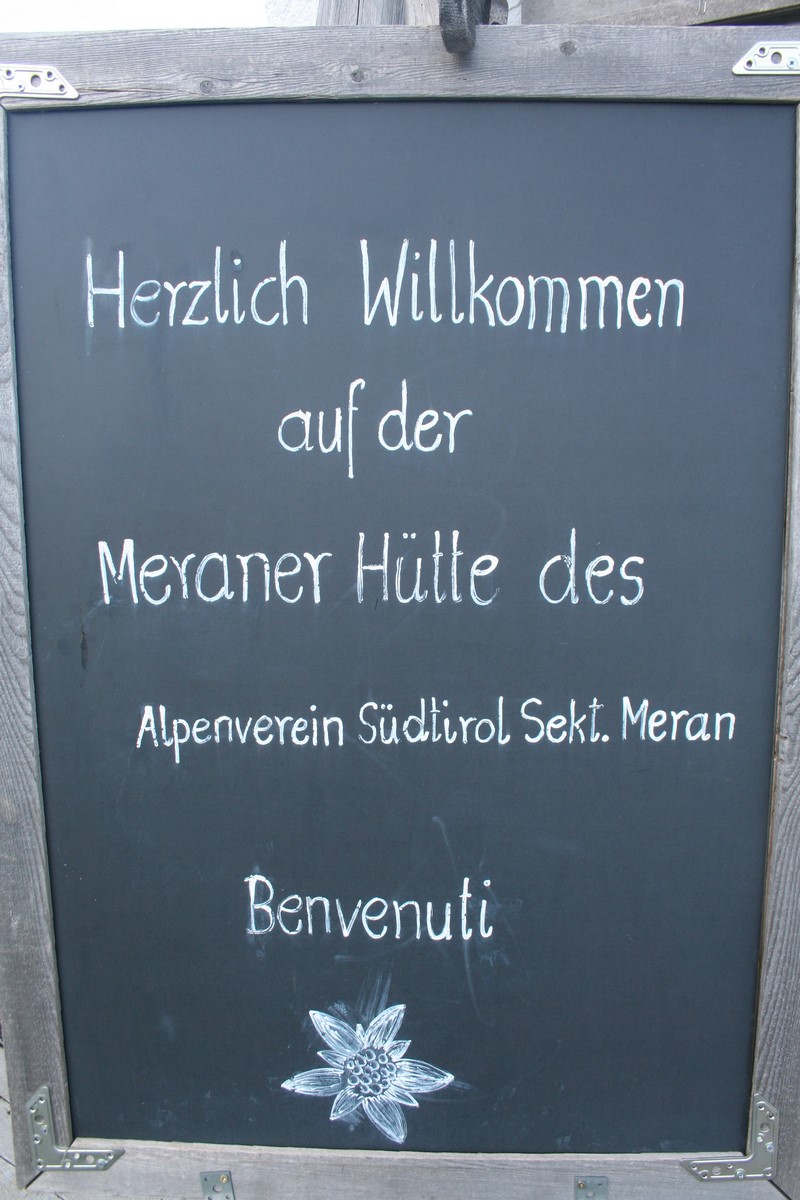 Herzlich Willkommen
auf der
Meraner Hütte des
Alpenverein Südtirol Sekt. Meran
Benvenuti